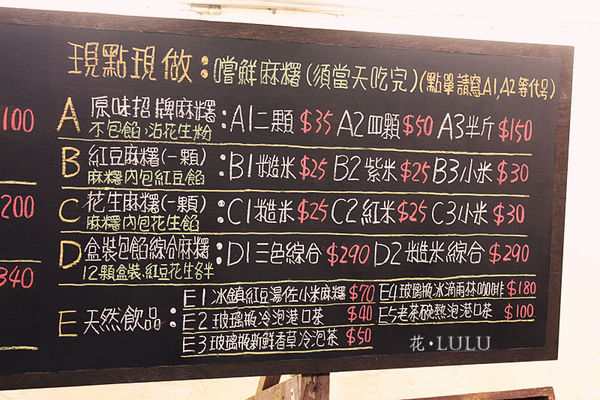 現點現做：嚐鮮麻糬（須當天吃完）（點單請寫A1,A2等代号）
100
A 原味招牌麻糬：A1二顆 $35 A2四顆 $50 A3半斤 $150
不包餡,沾花生粉
B 紅豆麻糬（一顆）：B1糙米 $25 B2紫米 $25 B3小米 $30
麻糬內包紅豆餡
200
C 花生麻糬（一顆）：C1糙米 $25 C2紅米 $25 C3小米 $30
麻糬內包花生餡
D 盒裝包餡綜合麻糬：D1三色綜合 $290 D2糙米綜合 $290
12顆盒裝,紅豆花生各半
340
E 天然飲品：
E1冰鎮紅豆湯佐小米麻糬 $70 E4玻璃瓶冰滴雨林咖啡 $180
E2玻璃瓶冷泡港口茶 $40 E5老茶碗熱泡港口茶 $100
E3玻璃瓶新鮮香草冷泡茶 $50
花·LULU